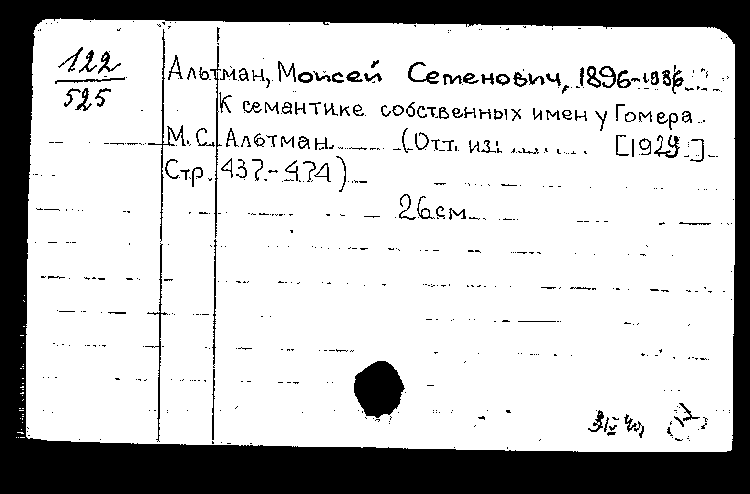 122
525
Альтман, Моисей Семенович, 1896-1986
К семантике собственных имен у Гомера
М. С. Альтман. (Отт. из: ........ [1929.]
Стр. 437-474)
26см